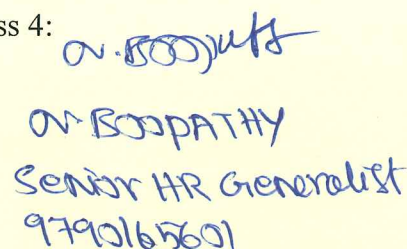 ss 4:
N. BOOPATHY
Senior HR Generalist
9790165601